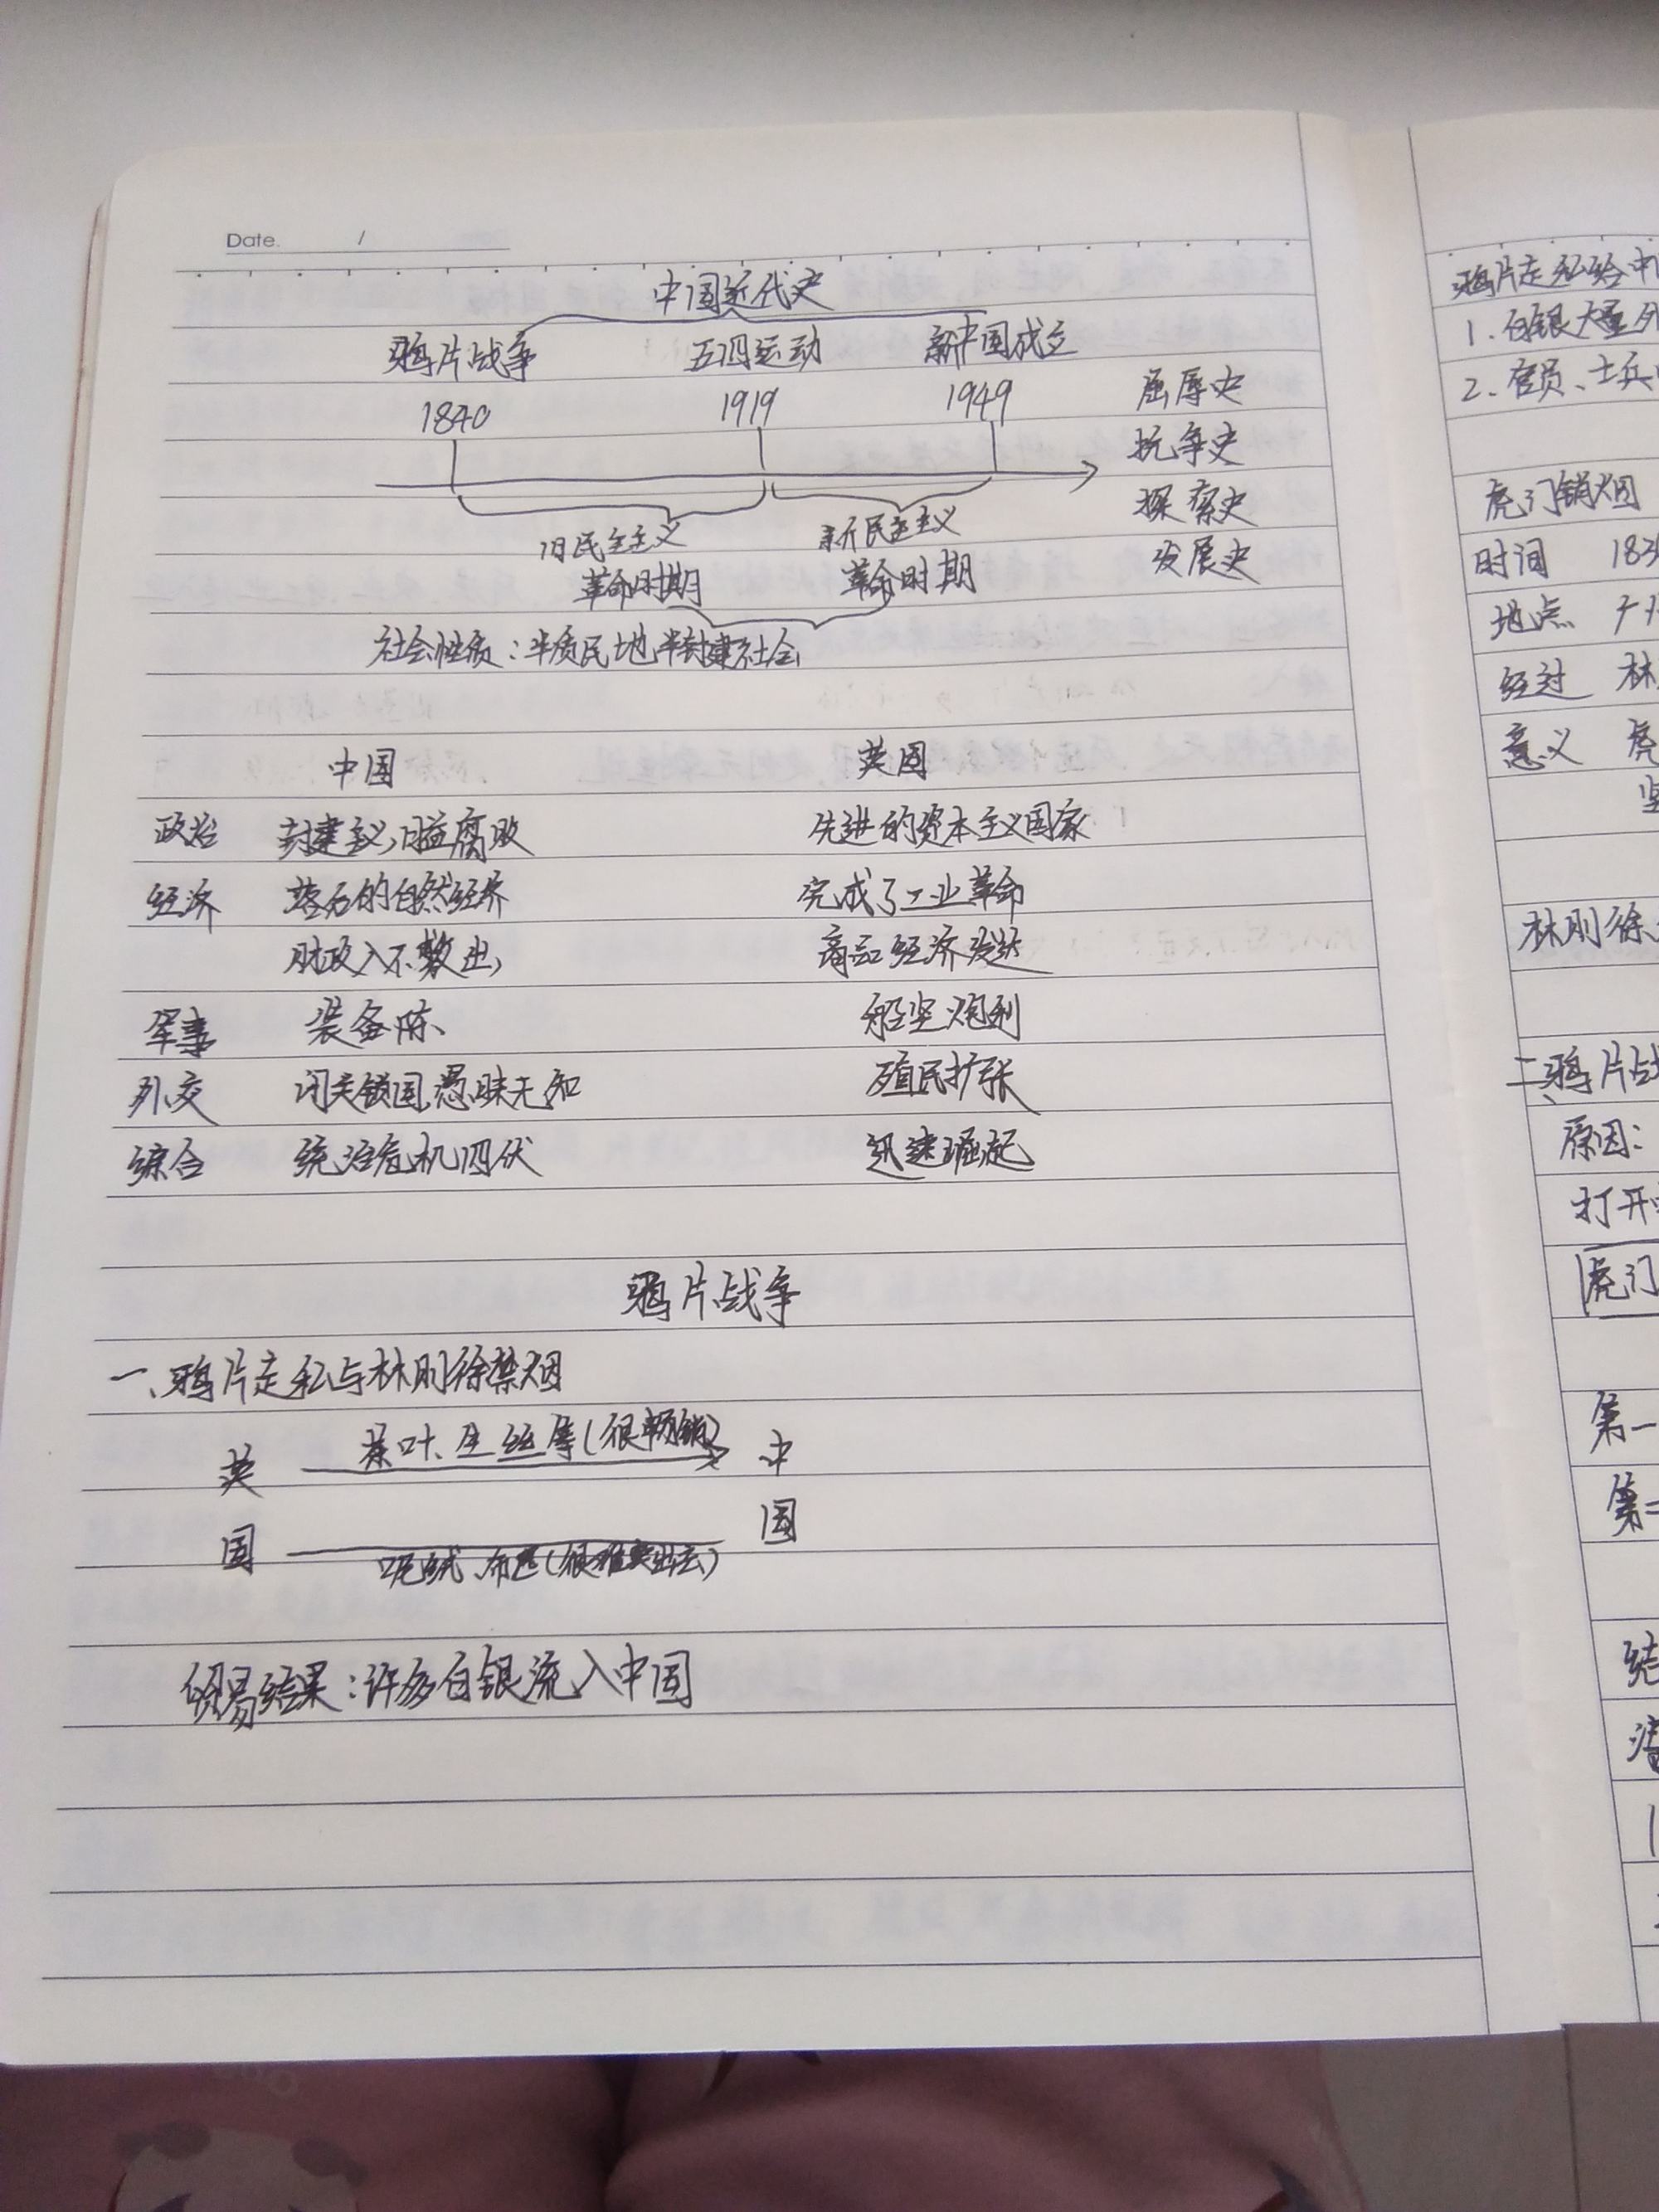 Date. /
中国近代史
鸦片战争 五四运动 新中国成立
1840 1919 1949 屈辱史
抗争史
探索史
旧民主主义 新民主主义
革命时期 革命时期 发展史
社会性质：半质民地半封建社会
中国 英国
政治 封建主义，日益腐败 先进的资本主义国家
经济 落后的自然经济 完成了工业革命
财政入不敷出， 商品经济发达
军事 装备陈、 船坚炮利
外交 闭关锁国，愚昧无知 殖民扩张
综合 统治危机四伏 迅速崛起
鸦片战争
一、鸦片走私与林则徐禁烟
英国 茶叶、生丝等（很畅销） 中国
呢绒、布匹（很难卖出去）
贸易结果：许多白银流入中国
鸦片走私给中
1. 白银大量外
2. 官员、士兵
虎门销烟
时间 183
地点 广
经过 林
意义 虎
坚
林则徐
二、鸦片战
原因：
打开
虎门
第一
第二
结